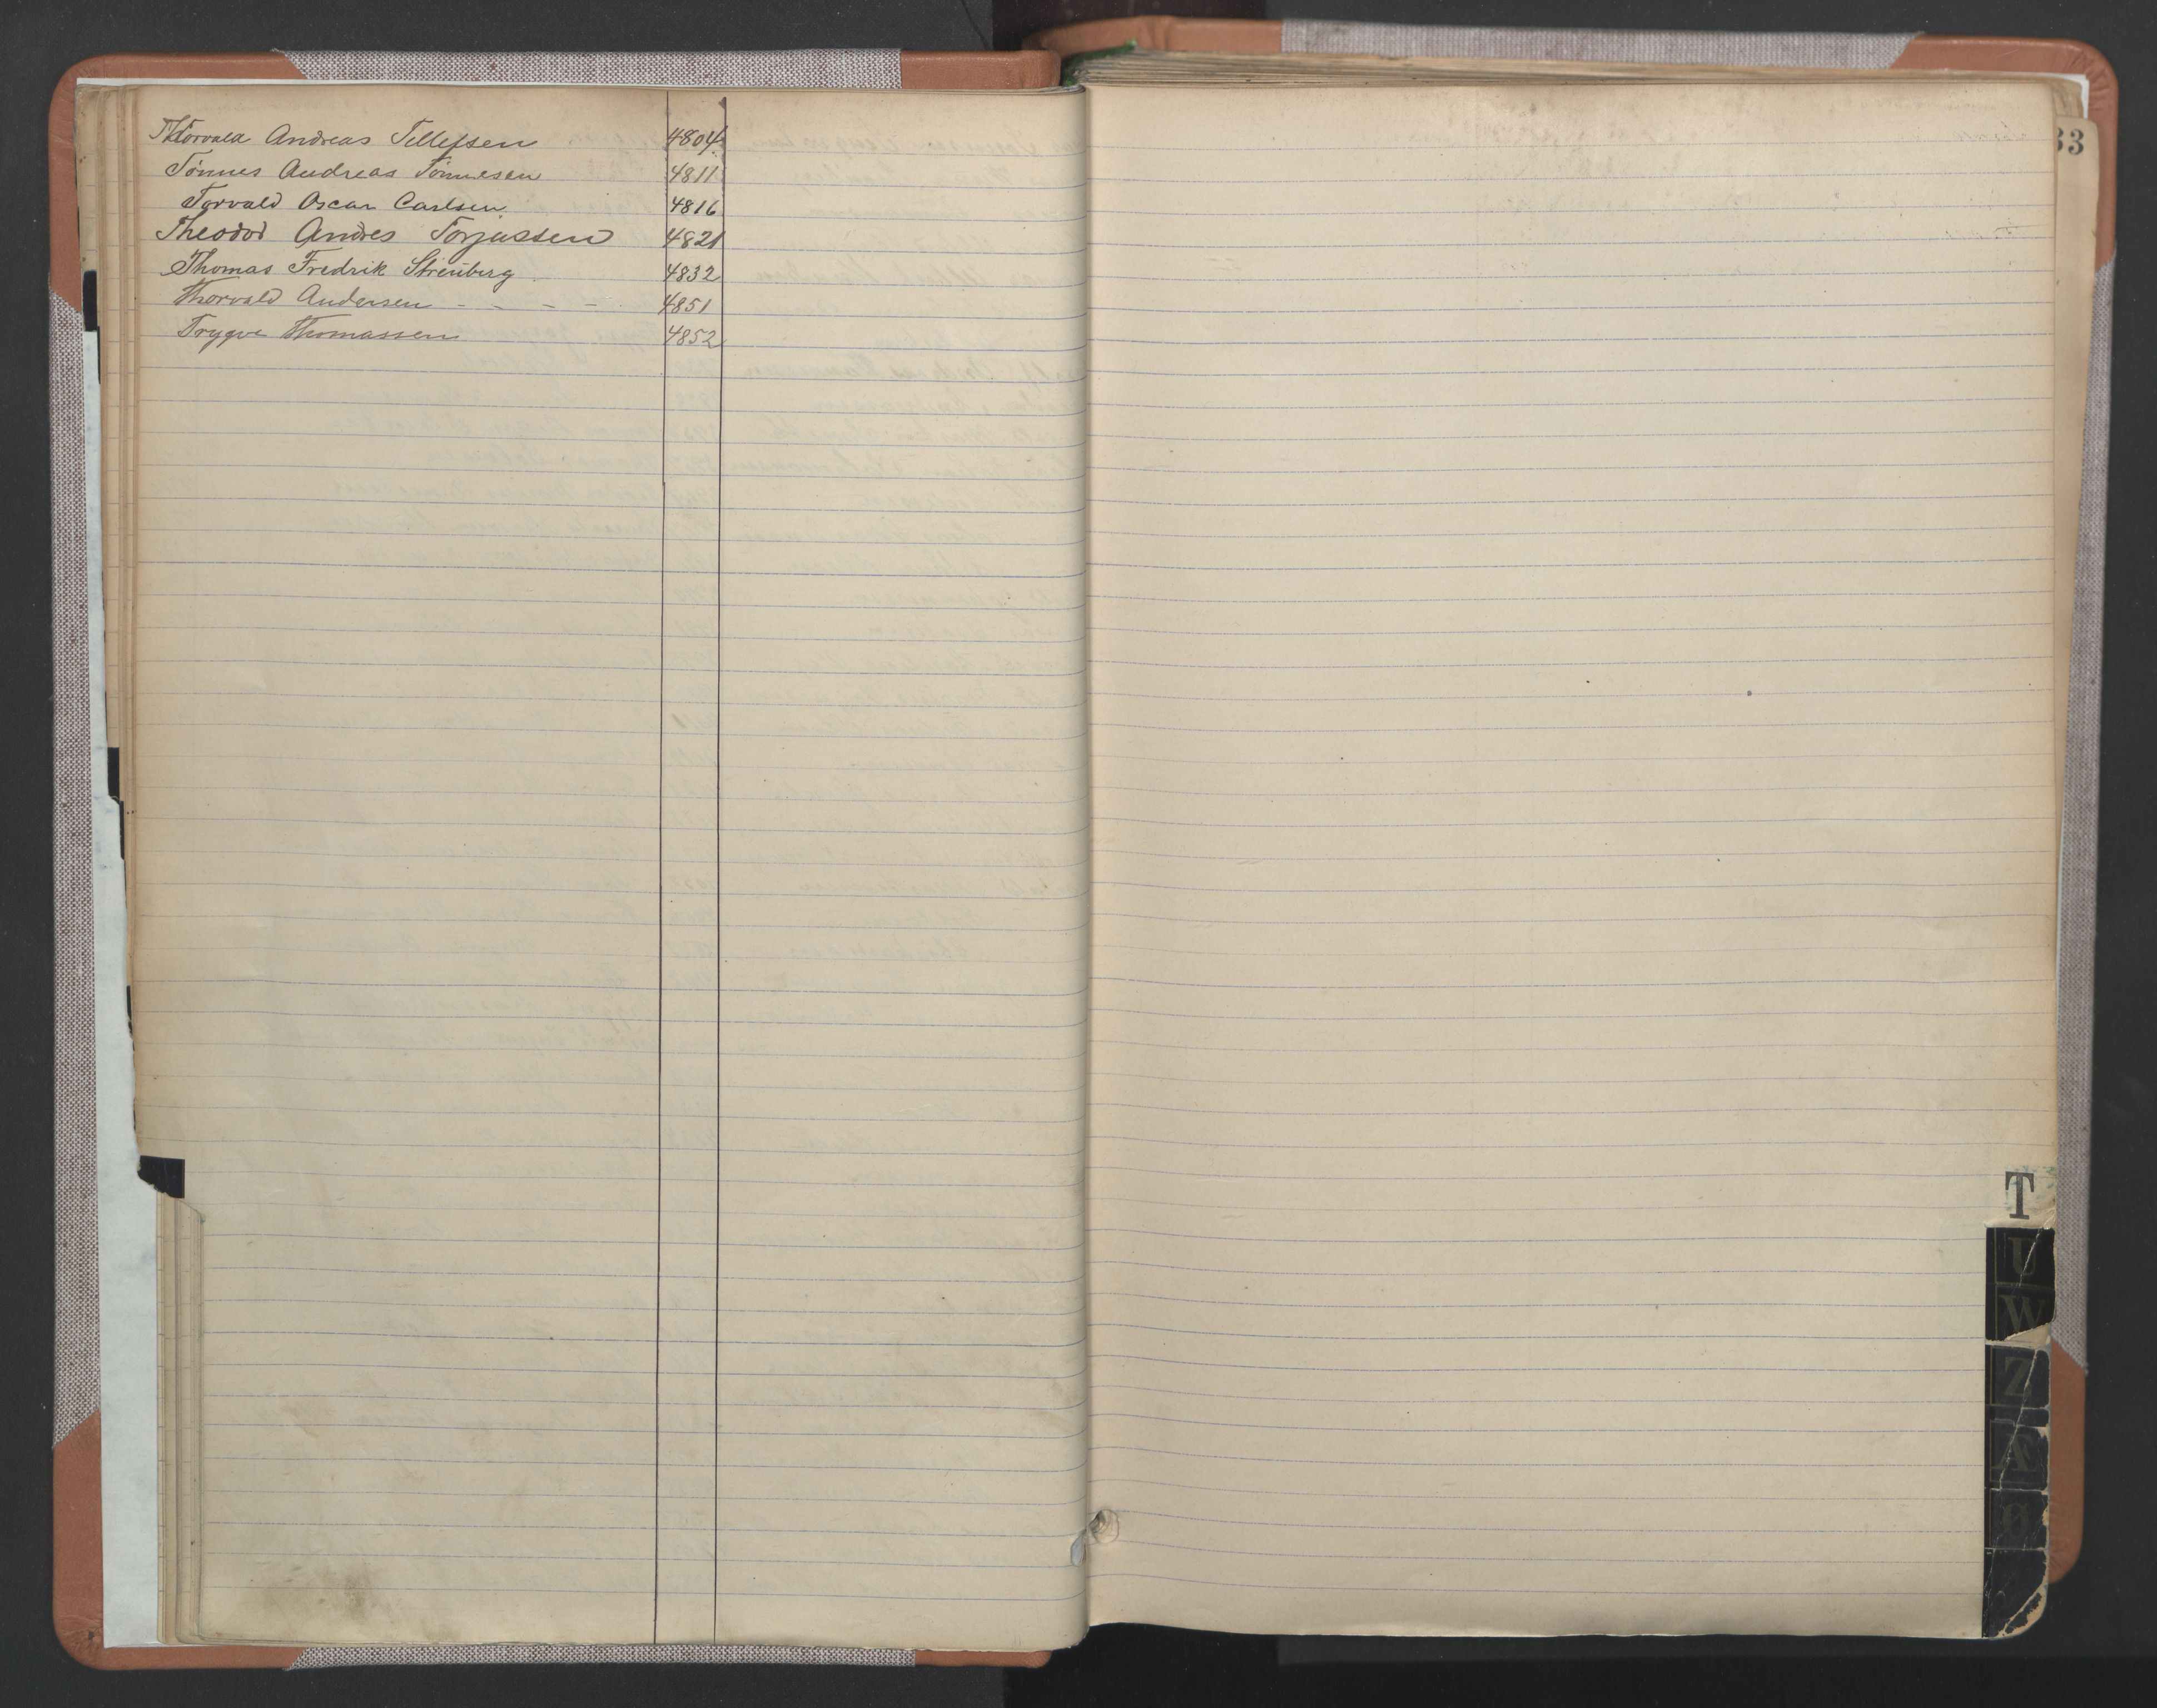 Thorvald Andreas Tellefsen 4804
Tönnes Andreas Tönnesen 4811
Torvald Oscar Carlsen 4816
Theodor Andres Torjussen 4821
Thomas Fredrik Strenberg 4832
Thorvald Andersen - - - - 4851
Trygve Thomassen 4852
33
T
U
W
Z
Æ
Ø